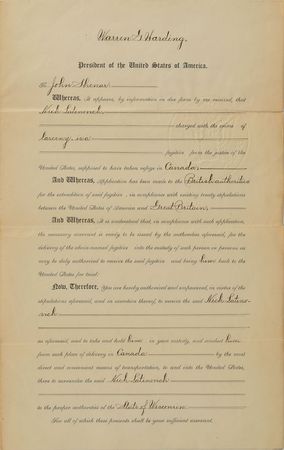 Warren G. Harding,
President of the United States of America.
To John Shenar
Whereas, It appears, by information in due form by me received, that
Nick Latinovich
charged with the crime of
Larceny,
fugitive from the justice of the
United States, supposed to have taken refuge in Canada,
And Whereas, Application has been made to the British authorities
for the extradition of said fugitive, in compliance with existing treaty stipulations
between the United States of America and Great Britain,
And Whereas, It is understood that, in compliance with such application,
the necessary warrant is ready to be issued by the authorities aforesaid, for the
delivery of the above-named fugitive into the custody of such person or persons as
may be duly authorized to receive the said fugitive and bring him back to the
United States for trial:
Now, Therefore, You are hereby authorized and empowered, in virtue of the
stipulations aforesaid, and in execution thereof, to receive the said Nick Latino-
vich
as aforesaid, and to take and hold him in your custody, and conduct him
from such place of delivery in Canada by the most
direct and convenient means of transportation, to and into the United States,
there to surrender the said Nick Latinovich
to the proper authorities of the State of Wisconsin.
For all of which these presents shall be your sufficient warrant.